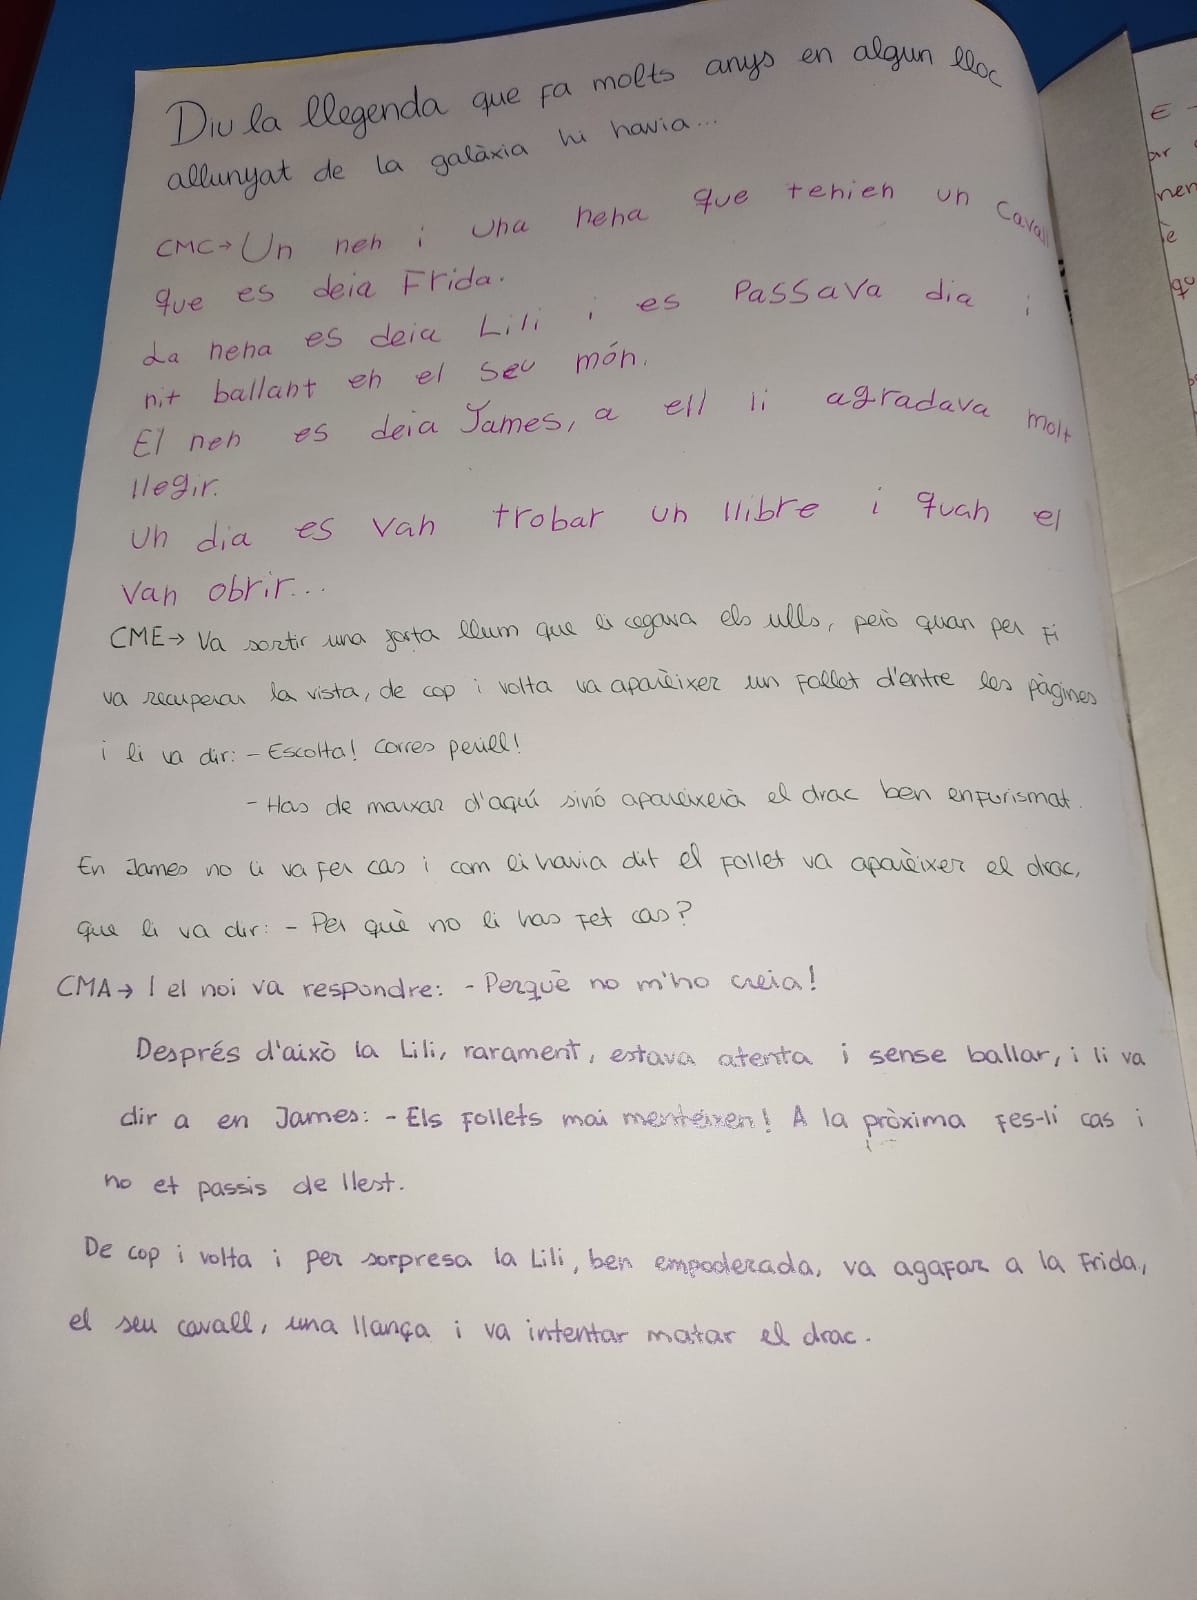 Diu la llegenda que fa molts anys en algun lloc
allunyat de la galàxia hi havia...
CMC→ Un nen i una nena que tenien un cavall
que es deia Frida.
La nena es deia Lili i es Passava dia i
nit ballant en el seu món.
El nen es deia James, a ell li agradava molt
llegir.
Un dia es van trobar un llibre i quan el
van obrir...
CME→ Va sortir una forta llum que li cegava els ulls, però quan per fi
va recuperar la vista, de cop i volta va aparèixer un follet d'entre les pàgines
i li va dir: - Escolta! Corres perill!
- Has de marxar d'aquí sinó apareixerà el drac ben enfurismat.
En James no li va fer cas i com li havia dit el follet va aparèixer el drac,
que li va dir: - Per què no li has fet cas?
CMA→ I el noi va respondre: - Perquè no m'ho creia!
Després d'això la Lili, rarament, estava atenta i sense ballar, i li va
dir a en James: - Els follets mai menteixen! A la pròxima fes-li cas i
no et passis de llest.
De cop i volta i per sorpresa la Lili, ben empoderada, va agafar a la Frida,
el seu cavall, una llança i va intentar matar el drac.
E